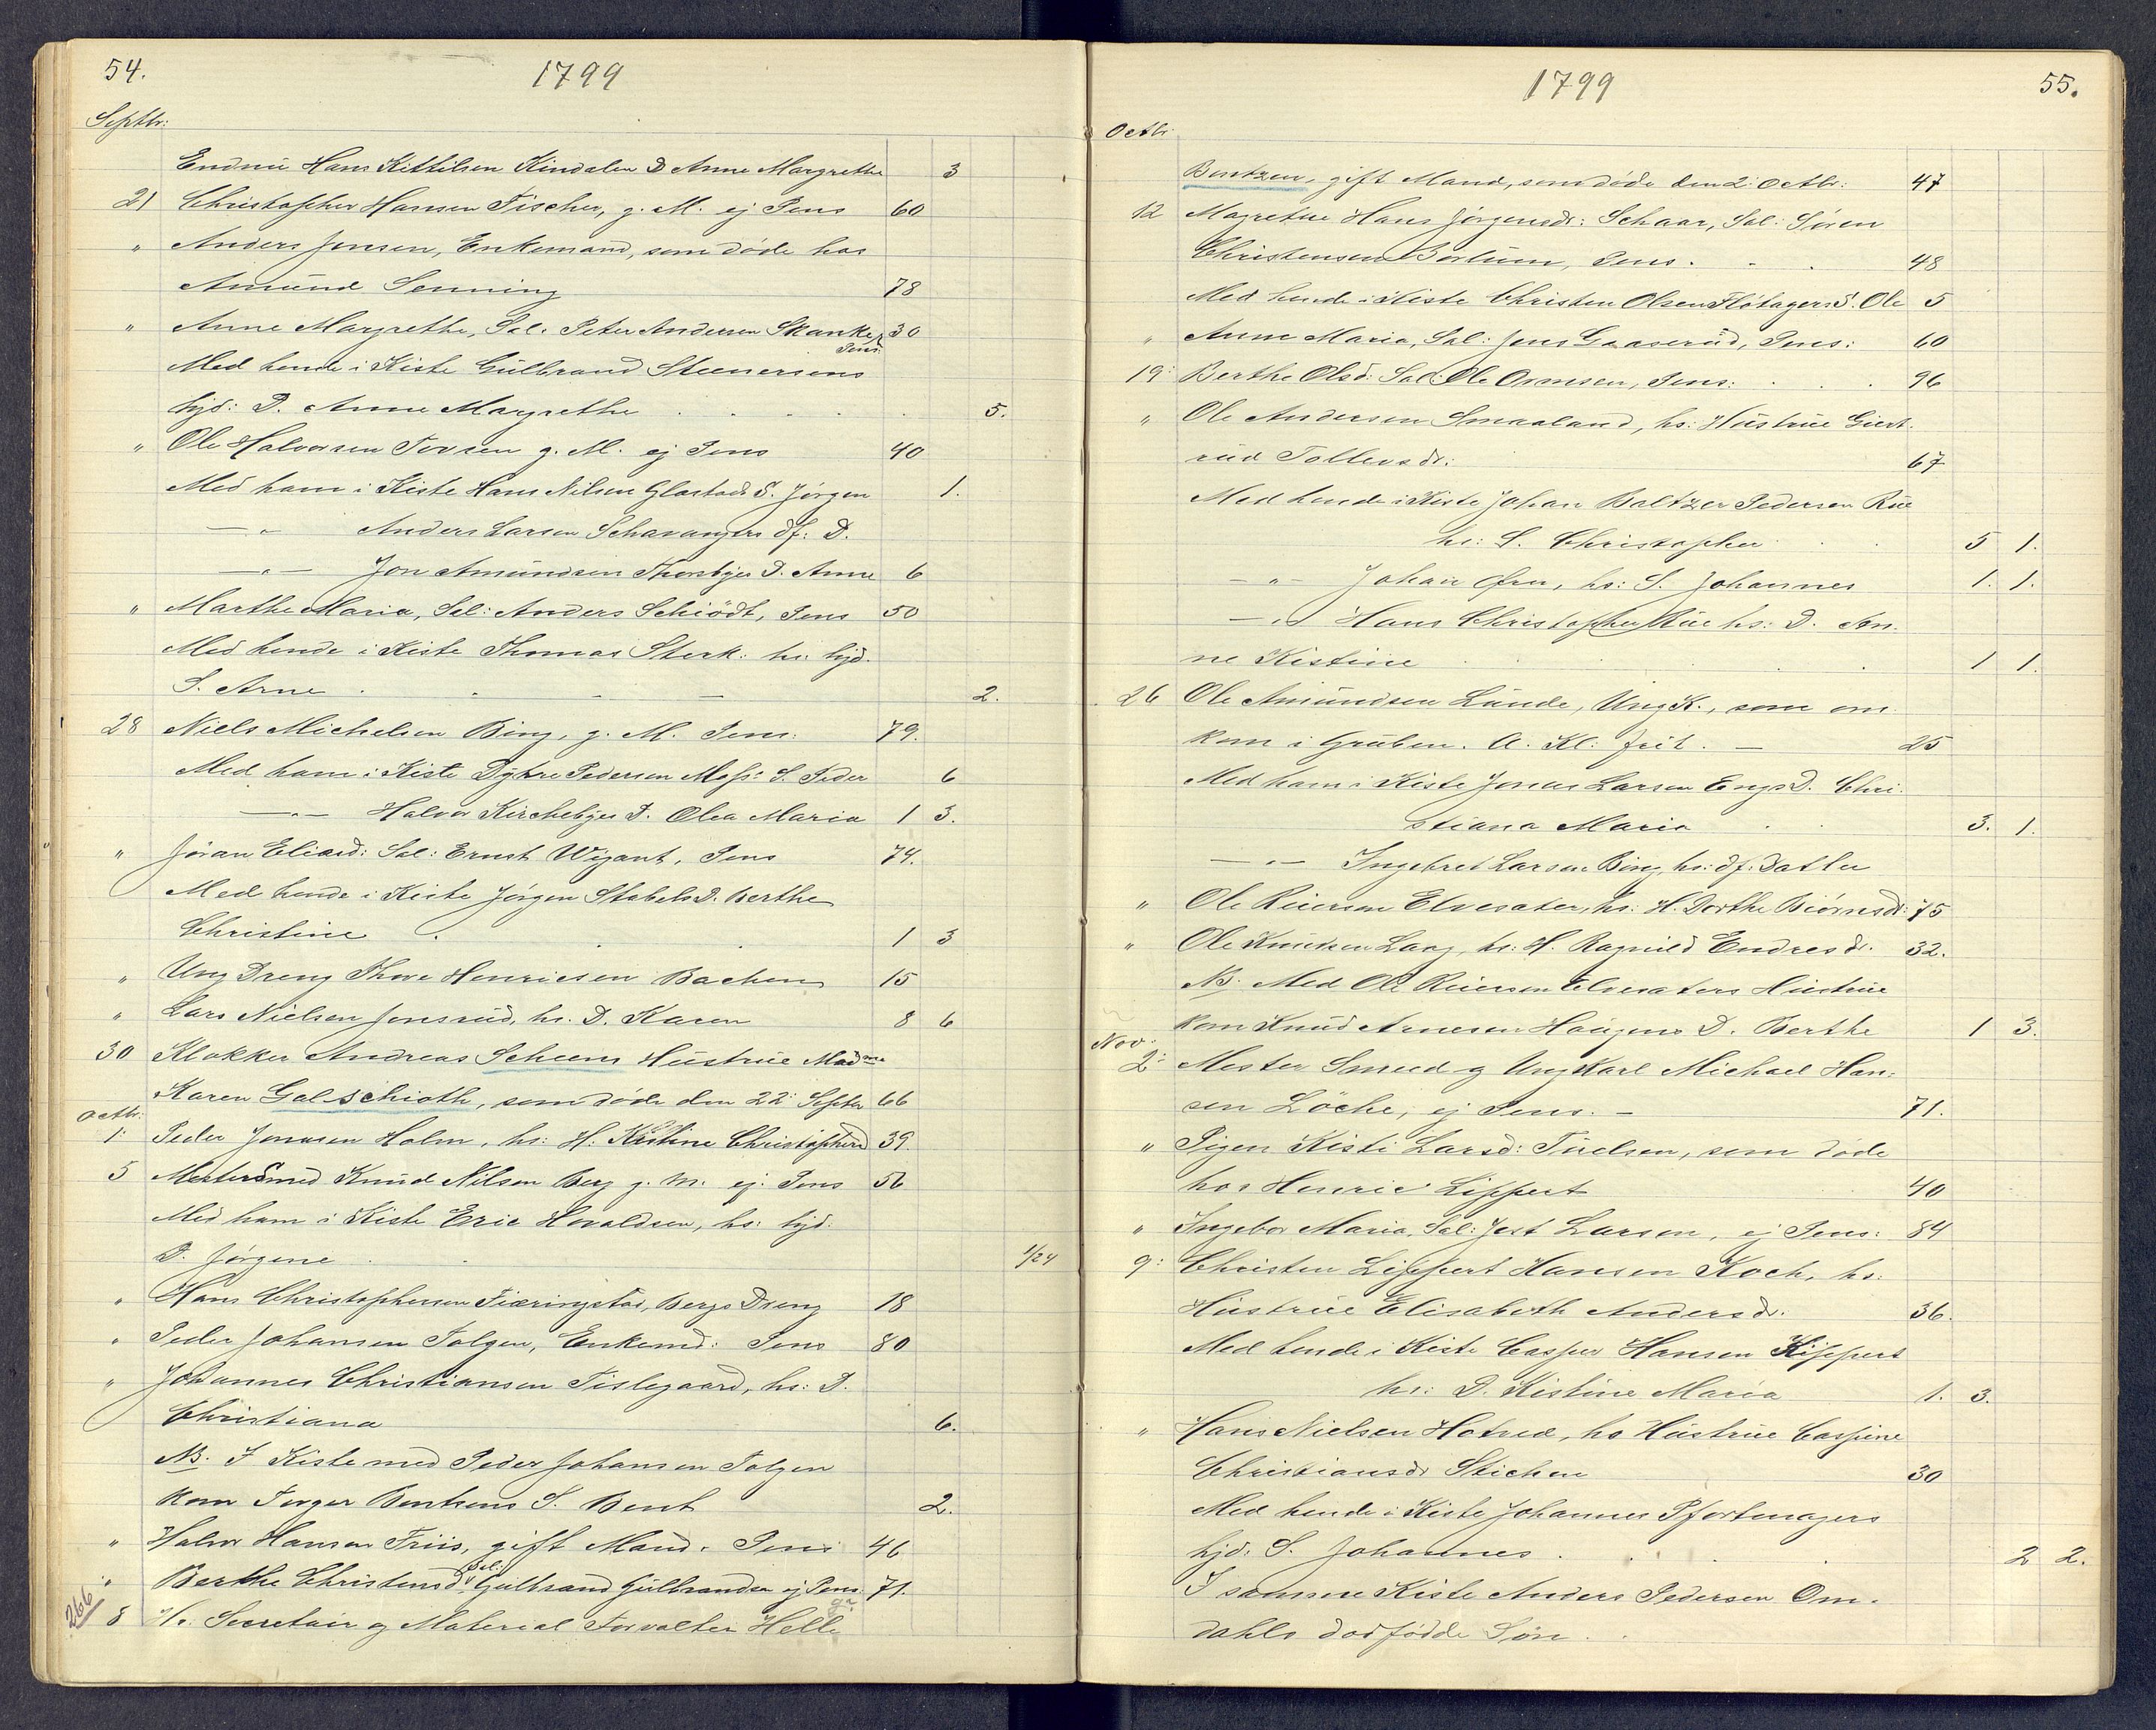 54.
1799
Septbr:
Endnu Hans Kittilsen Kindalen D Anne Margrethe 3
21 Christopher Hansen Fischer, g. M. ej Pens 60
" Anders Jensen, Enkemand, som døde hos
Amund Senning 78
" Anne Margrethe, Sal. Peter Andersen Skanke, 30
Pens:
Med hende i Kiste Gulbrand Steenersens
hjd: D. Anne Margrethe 5.
" Ole Halvorsen Forsen g. M. ej Pens 40
Med ham i Kiste Hans Nilsen Glastads S. Jørgen 1.
— " Anders Larsen Schavangers df: D.
— " — Jon Amundsen Thorsbyes D. Anne 6
" Marthe Maria, Sal: Anders Schiödt, Pens 50
Med hende i Kiste Thomas Sterk: hs: hjd.
S. Arne 2.
28 Niels Michelsen Bing, g. M. Pens: 79.
Med ham i Kiste Dÿhre Pedersen Moss: S. Peder 6
— " — Halvor Kirchebyes D. Olea Maria 1 3.
" Jöran Eliasd: Sal: Ernst Wigant, Pens 74.
Med hende i Kiste Jörgen Stabels D. Berthe
Christine 1 3
" Ung Dreng Thore Henricsen Bachen 15
" Lars Nielsen Jonsrud, hs. D. Karen 8 6
30 Klokker Andreas Scheens Hustrue Madme
Karen Galschioth, som døde den 22: Septbr 66
Octbr:
1: Peder Jonasen Holm, hs: H: Kistine Christophersd 39.
5 Mestersmed Knud Nilsen Berg g. M. ej. Pens 56
Med ham i Kiste Eric Havaldsen, hs: hjd:
D. Jørgene 1/24
" Hans Christophersen Fiæringstad, Bergs Dreng 18
" Peder Johansen Tolgen, Enkemd: Pens 80
" Johannes Christiansen Tislegaard, hs: D.
Christiana 6.
NB. I Kiste med Peder Johansen Tolgen
kom Torger Bentsens S. Bent 2.
" Halvor Hansen Friis, gift Mand. Pens 46
Sal:
" Berthe Christensd Gulbrand Gulbrandsen ej Pens. 71.
8 Hr. Secretair og Material Forvalter Helle
266
1799
55.
Octbr
Bentzen, gift Mand, som døde den 2: Octbr: 47
12 Magrethe Hans Jörgensdr: Schaar, Sal: Sören
Christensen Bortum, Pens. 48
Med hende i Kiste Christen Olsen Flötagers S. Ole 5
" Anne Maria, Sal: Jens Gaaserud, Pens: 60
19: Berthe Olsd: Sal: Ole Ormsen, Pens: 96
" Ole Andersen Smaaland, hs: Hustrue Giert-
rud Tollevsdr: 67
Med hende i Kiste Johan Baltzer Pedersen Rue
hs: S. Christopher 5 1.
— " — Johan Øren, hs: S. Johannes 1. 1.
— " Hans Christopher Rue hs: D. An-
ne Kistine 1 1.
26 Ole Amundsen Lunde, Ung K., som om-
kom i Gruben. A. Kl: frit. — 25
Med ham i Kiste Jonas Larsen Engs D. Chri-
stiana Maria 3. 1.
— " — Ingebret Larsen Bing, hs: df: Datter
" Ole Reiersen Elvesater, hs: H. Dorthe Biörnsdr: 75
" Ole Knudsen Lang, hs: H. Ragnild Endresdr. 32.
NB. Med Ole Reiersen Elvesaters Hustrue
kom Knud Arnesen Haugens D. Berthe 1 3.
Nov:
2: Mester Smed og Ung Karl Michael Han-
sen Löche, ej Pens. — 71.
" Pigen Kisti Larsd: Tuelsen, som døde
hos Henric Lippert 40
" Ingebor Maria, Sal: Jost Larsen, ej Pens: 84
9: Christen Lippert Hansen Koch, hs:
Hustrue Elisabeth Andersdr. 36.
Med hende i Kiste Casper Hansen Kippert
hs: D. Kistine Maria 1. 3.
" Hans Nielsen Hotved, hs Hustrue Caspine
Christiansdr Stichen 30
Med hende i Kiste Johannes Pfortmagers
hjd: S. Johannes 2 2.
I samme Kiste Anders Pedersen Om-
dahls dødfødde Søn.